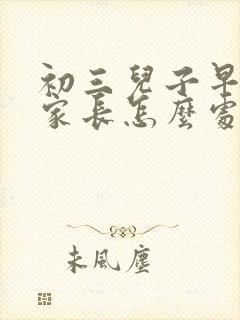 初三兒子早
家長怎麼處
未風塵